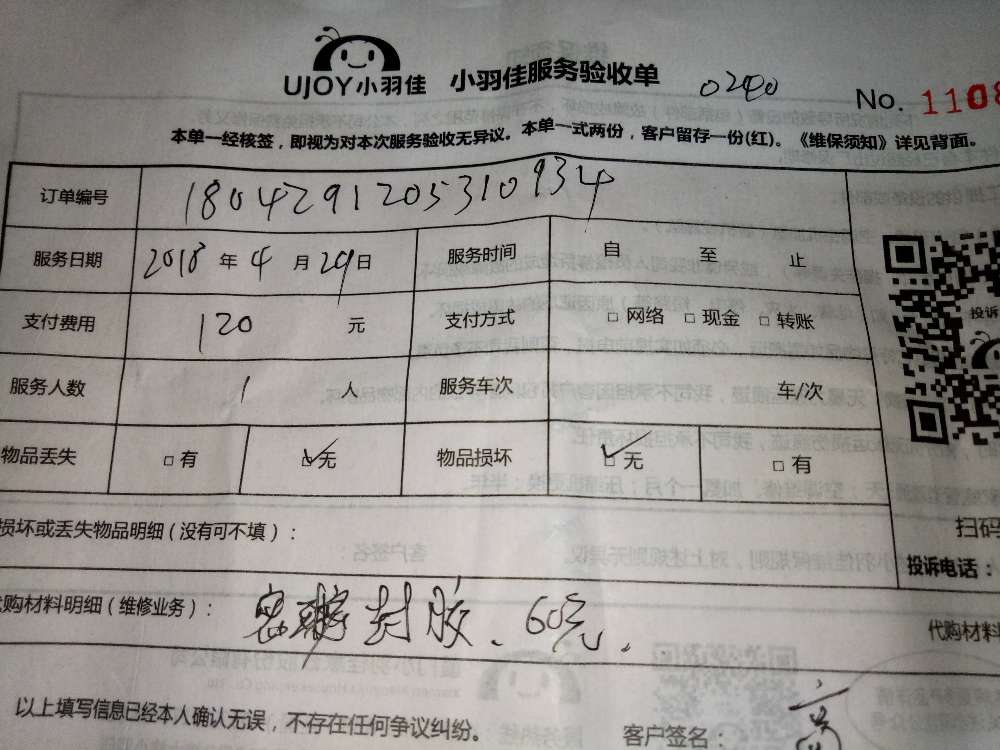 UJOY小羽佳 小羽佳服务验收单 0240 No. 1108
本单一经核签，即视为对本次服务验收无异议。本单一式两份，客户留存一份(红)。《维保须知》详见背面。
订单编号 18042912053310934
服务日期 2018 年 4 月 29 日 服务时间 自 至 止
支付费用 120 元 支付方式 □ 网络 □ 现金 □ 转账
服务人数 1 人 服务车次 车/次
物品丢失 □ 有 ☑ 无 物品损坏 ☑ 无 □ 有
投诉
损坏或丢失物品明细（没有可不填）：
扫码
投诉电话：
购材料明细（维修业务）： 封胶、60元.
代购材料
以上填写信息已经本人确认无误，不存在任何争议纠纷。
客户签名：